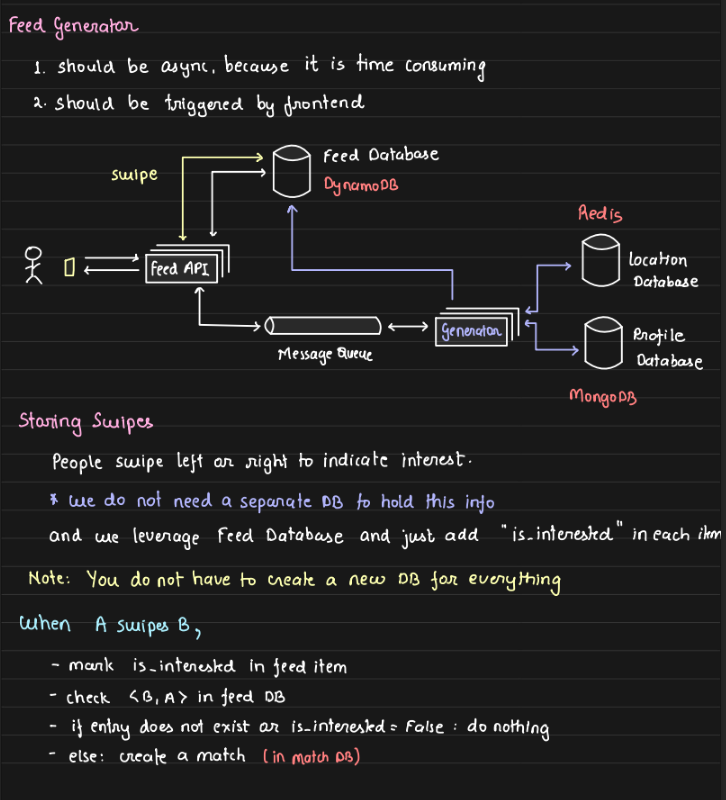 Feed Generator
1. should be async, because it is time consuming
2. should be triggered by frontend
swipe
Feed Database
DynamoDB
Redis
Feed API
Location
Database
Generator
Message Queue
Profile
Database
MongoDB
Storing Swipes
People swipe left or right to indicate interest.
* we do not need a separate DB to hold this info
and we leverage Feed Database and just add "is_interested" in each item
Note: You do not have to create a new DB for everything
When A swipes B,
- mark is_interested in feed item
- check <B, A> in feed DB
- if entry does not exist or is_interested = False : do nothing
- else: create a match (in match DB)